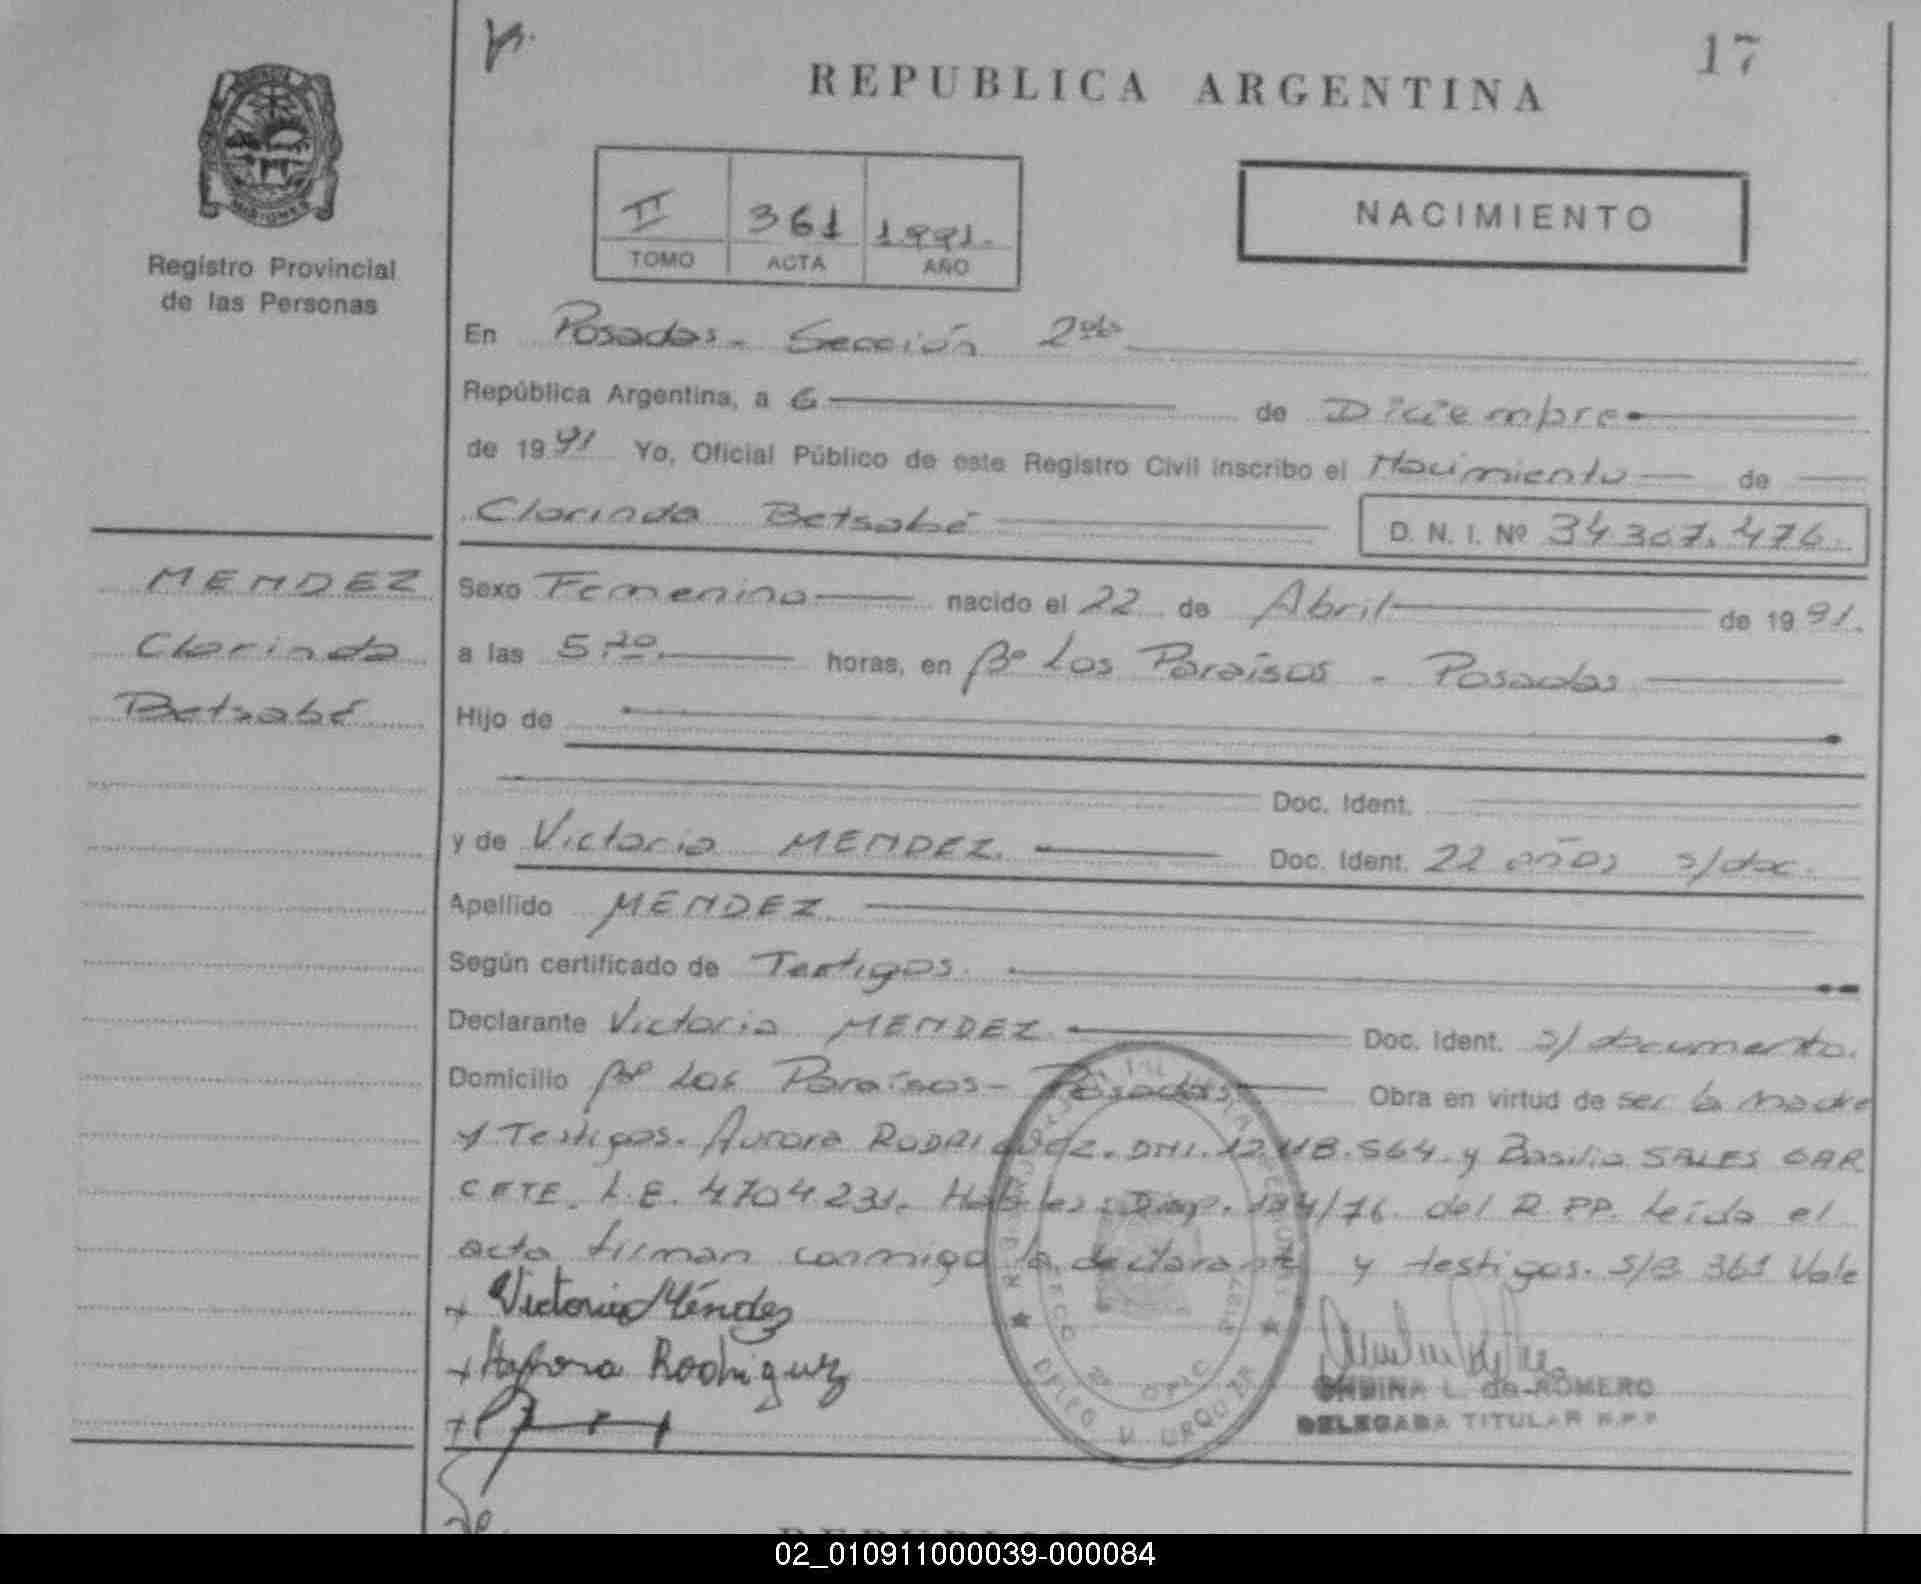 17
REPUBLICA ARGENTINA
MISIONES
Registro Provincial
de las Personas
II 361 1991.
TOMO ACTA AÑO
NACIMIENTO
En Posadas - Sección 2da
República Argentina, a 6 de Diciembre
de 1991 Yo, Oficial Público de este Registro Civil inscribo el Nacimiento de
Clarinda Betsabé D. N. I. Nº 34307.476.
MENDEZ
Clarinda
Betsabé
Sexo Femenino nacido el 22 de Abril de 1991.
a las 5,20 horas, en Bº Los Paraísos - Posadas
Hijo de
Doc. Ident.
y de Victoria MENDEZ. Doc. Ident. 22 años s/doc.
Apellido MENDEZ
Según certificado de Testigos.
Declarante Victoria MENDEZ Doc. Ident. s/documento.
Domicilio Bº Los Paraísos - Posadas Obra en virtud de ser la madre
y Testigos. Aurora RODRIGUEZ. DNI. 12.118.564 y Basilio SALES GAR
CETE. L.E. 4704.231. Hábiles. Disp. 184/76. del R.PP. Leída el
acta firman conmigo la declarante y testigos. S/B 361 Vale
+ Victoria Méndez
+ Aurora Rodriguez
+
ONDINA L. de ROMERO
DELEGADA TITULAR R.P.P
DELEG V URQUIZA
REPUBLICA
02_010911000039-000084